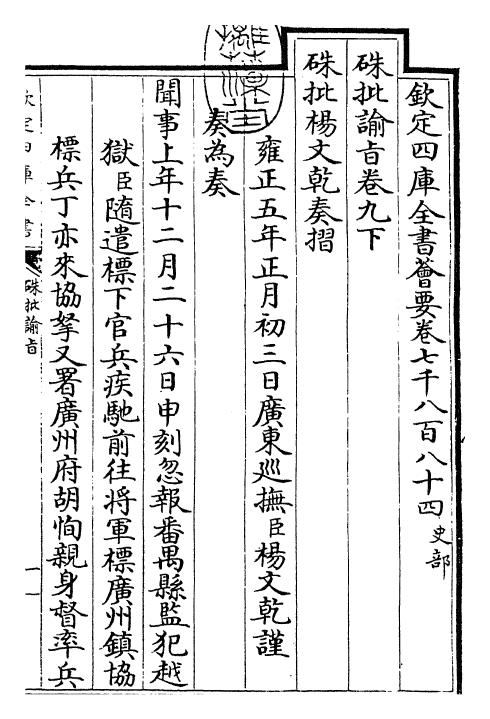 欽定四庫全書薈要卷七千八百八十四 史部
硃批諭旨卷九下
硃批楊文乾奏摺
雍正五年正月初三日廣東巡撫臣楊文乾謹
奏為奏
聞事上年十二月二十六日申刻忽報番禺縣監犯越
獄臣隨遣標下官兵疾馳前往將軍標廣州鎮協
標兵丁亦來協拏又署廣州府胡恂親身督率兵
欽定四庫全書
硃批諭旨
一